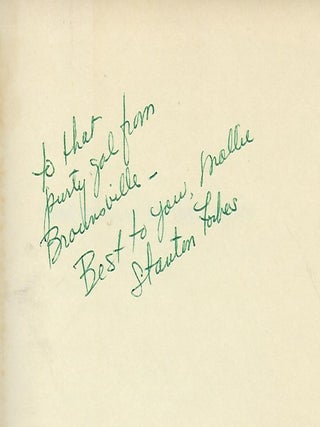 To that
purty gal from
Brownsville –
Best to you, Mollie
Stanton Forbes